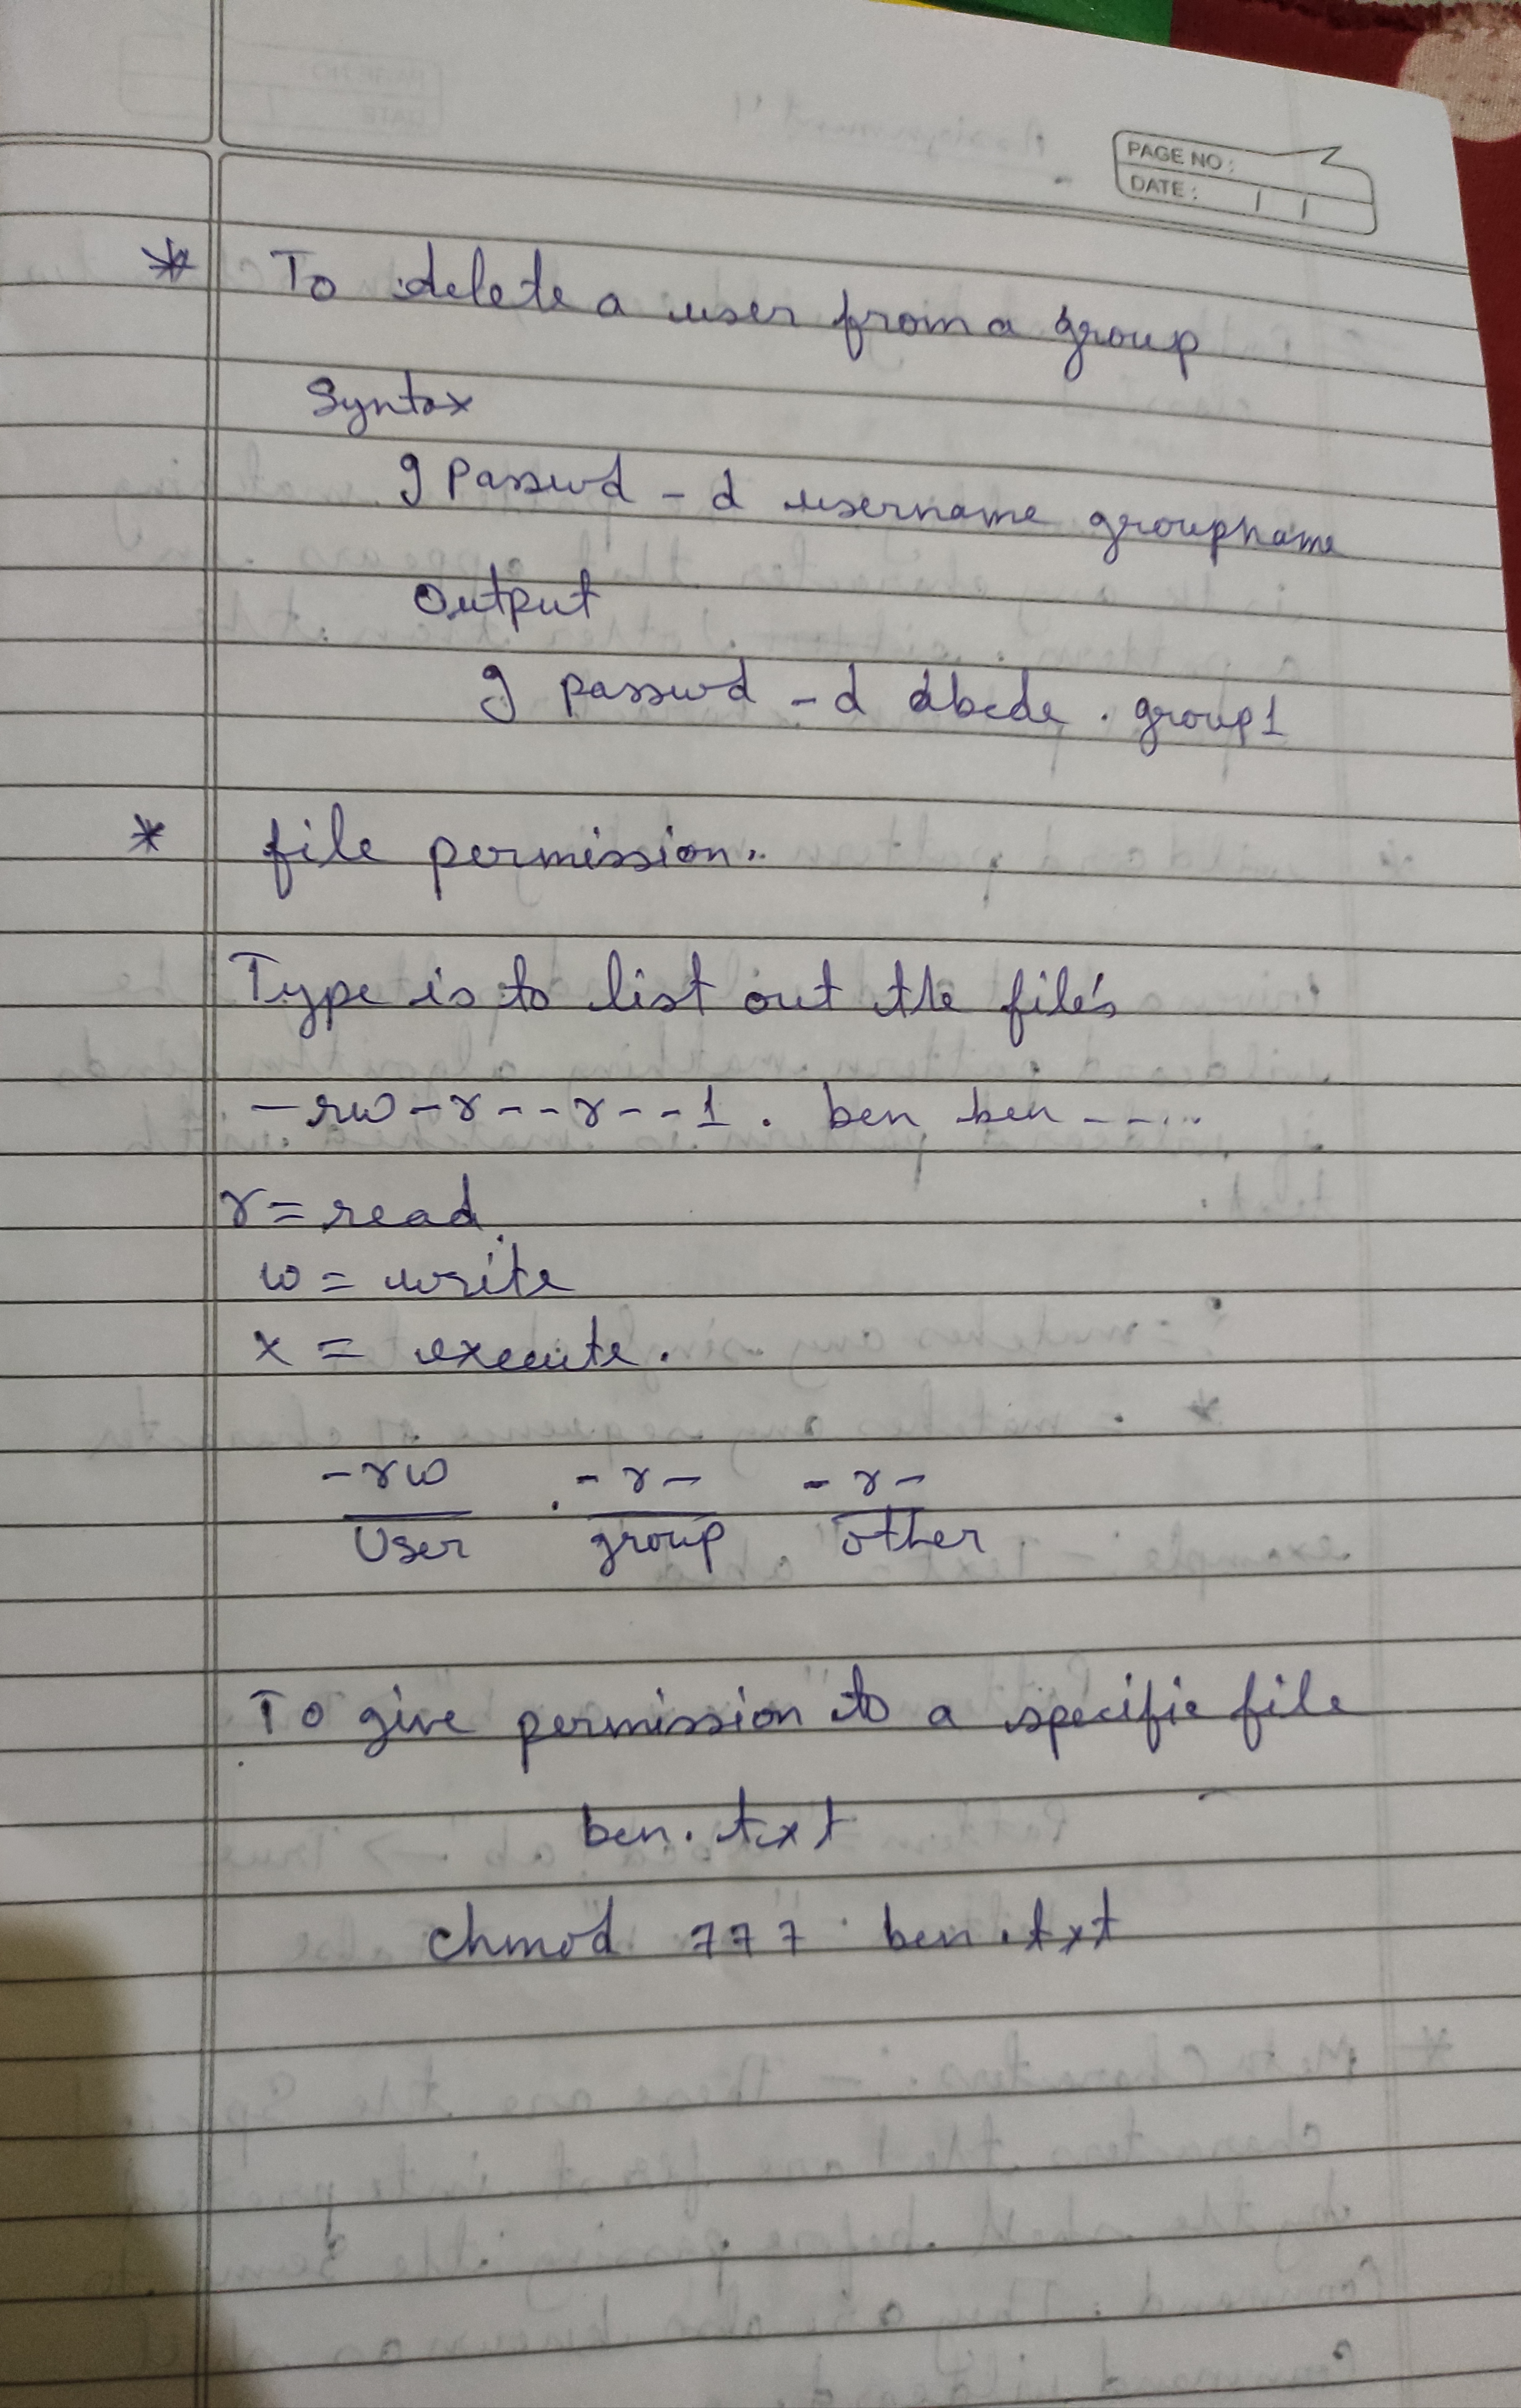 PAGE NO:
DATE:
* To delete a user from a group
Syntax
g passwd - d username groupname
Output
g passwd - d abcde . group1
* file permission.
Type is to list out the file's
- rw - r - - r - - 1 . ben ben - - ...
r = read
w = write
x = execute.
- rw - r - - r -
User group other
To give permission to a specific file
ben. txt
chmod 777 ben.txt